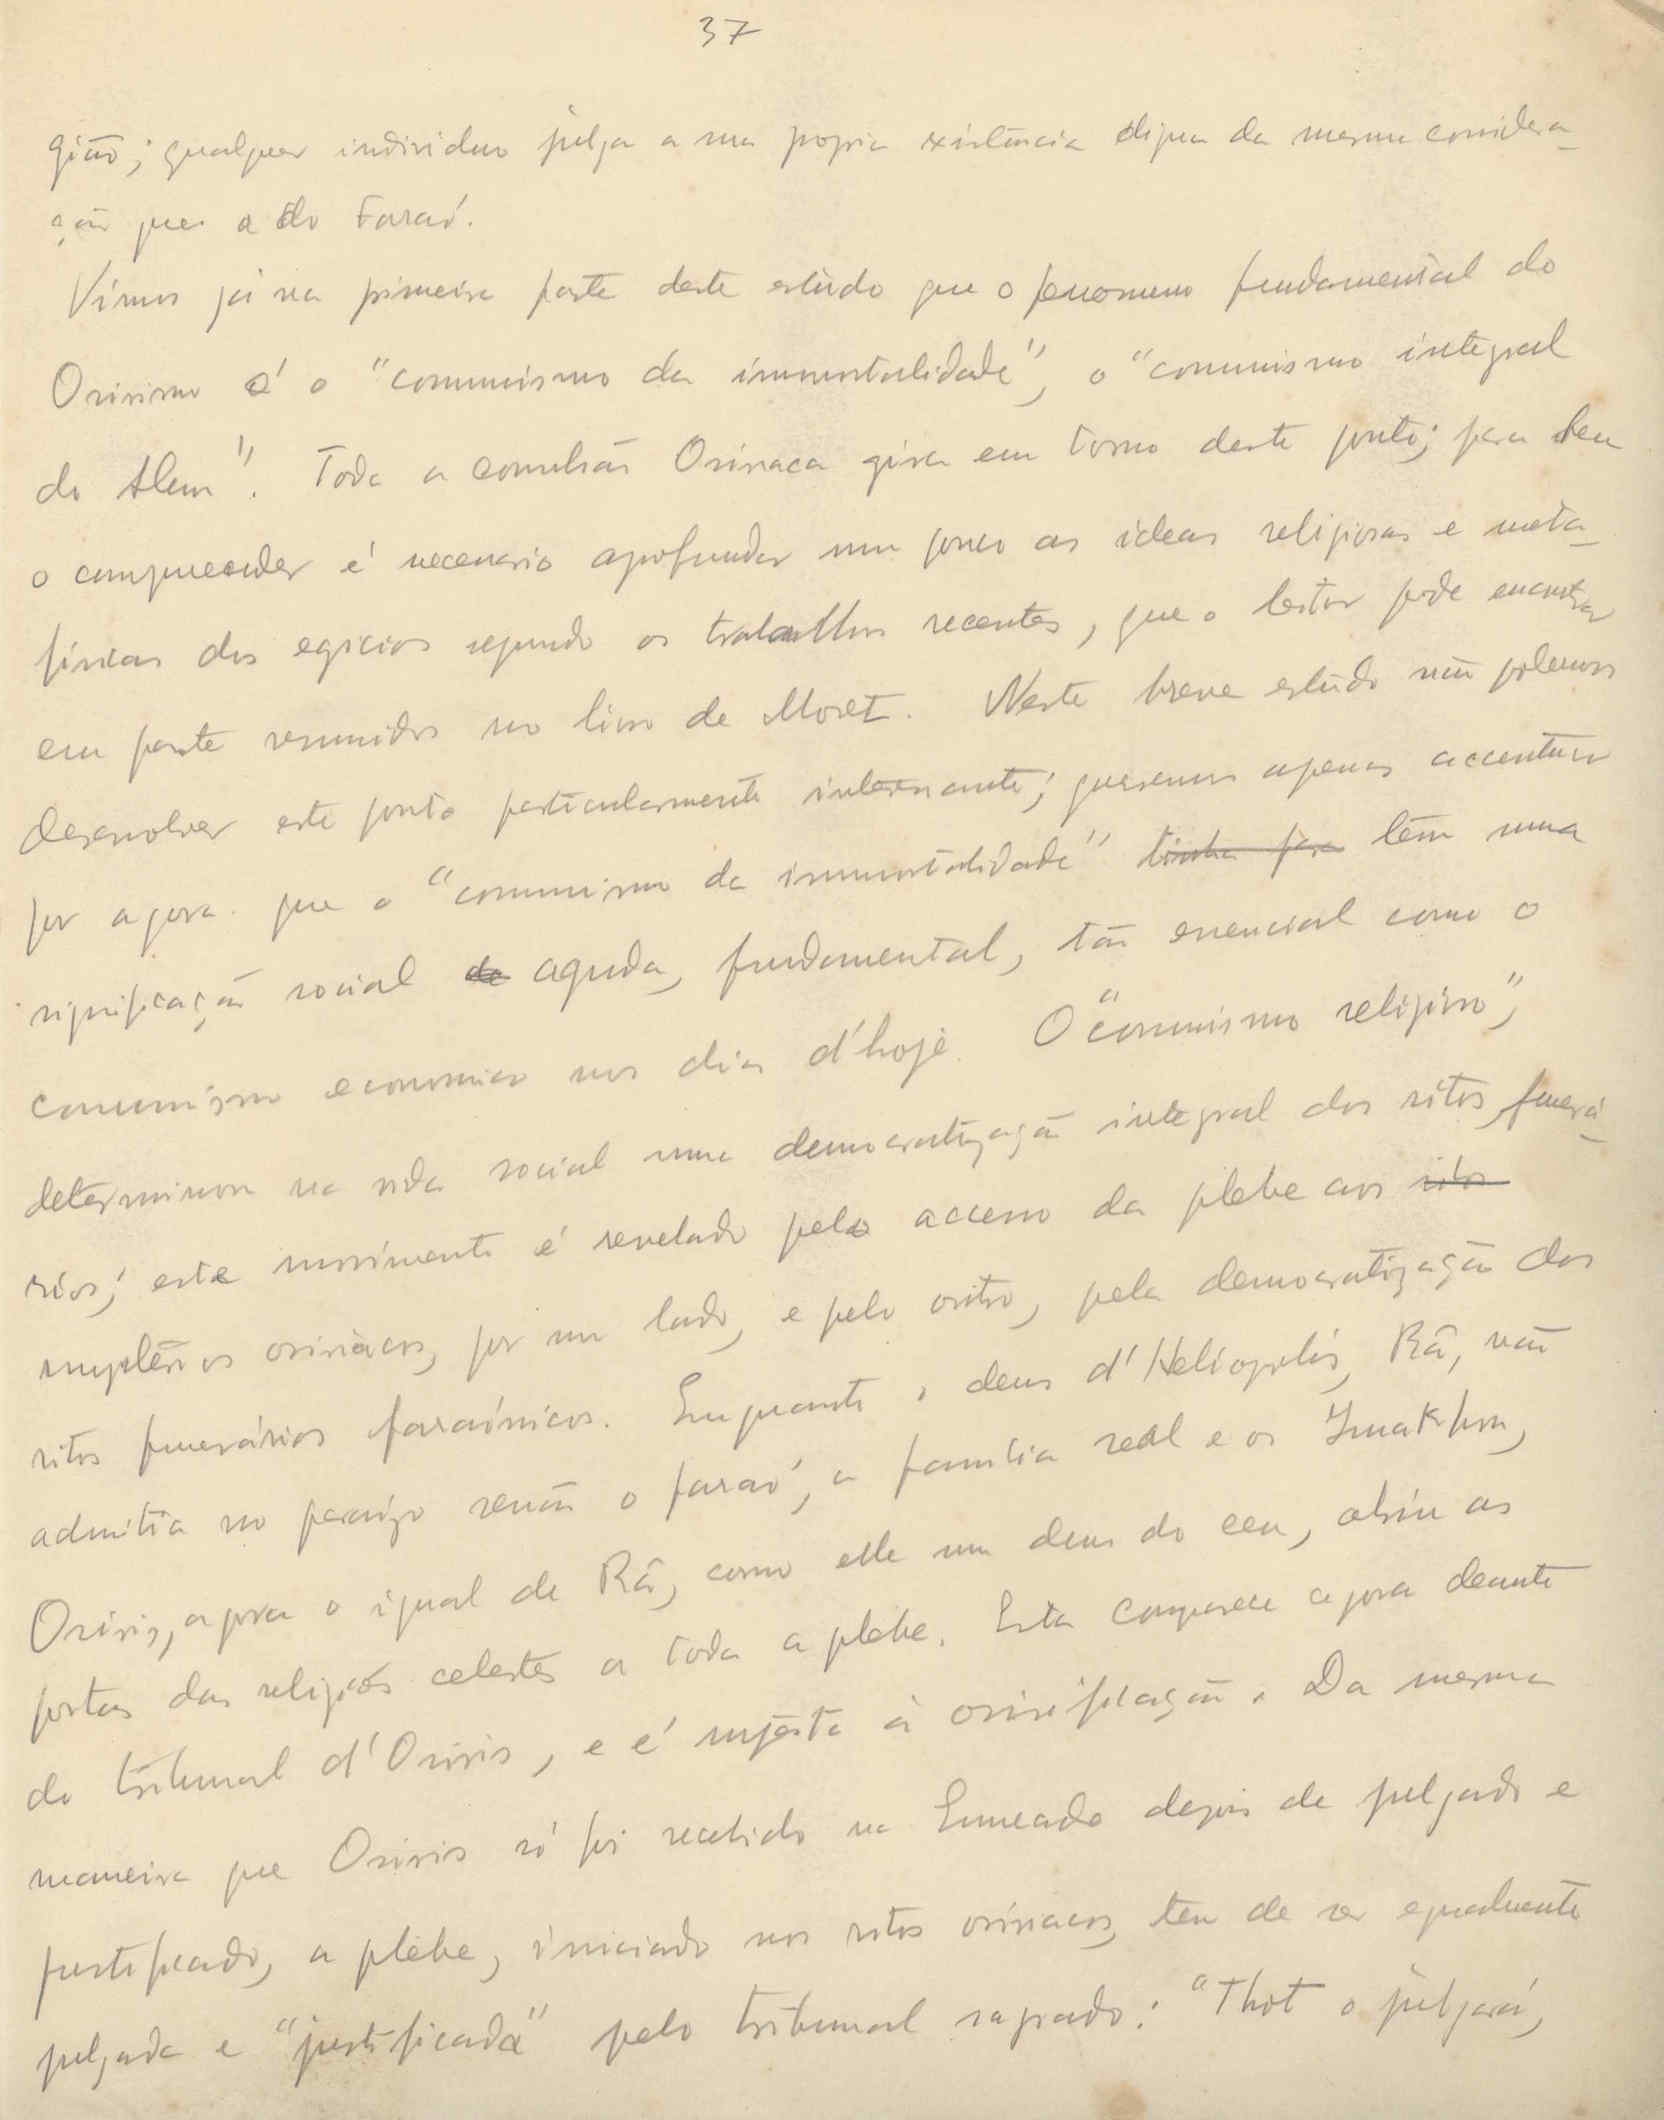 37
gião; qualquer individuo julga a sua propria existência digna da mesma considera-
ção que a do Faraó.
Vimos já na primeira parte deste estudo que o fenomeno fundamental do
Osirismo é o "communismo da immortalidade", o "communismo integral
do Alem". Toda a convulsão Osiriaca gira em torno deste ponto; para bem
o comprender é necessario aprofundar um pouco as ideas religiosas e meta-
físicas dos egicios segundo os trabalhos recentes, que o leitor pode encontrar
em parte reunidos no livro de Moret. Neste breve estudo não podemos
desenvolver este ponto particularmente interessante; queremos apenas accentuar
por agora que o "communismo da immortalidade" tinha para têm uma
significação social de aguda, fundamental, tão essencial como o
communismo economico nos dias d'hoje. O "communismo religioso",
determinou na vida social uma democratização integral dos ritos funerá-
rios; este movimento é revelado pelo accesso da plebe aos ritos
mystérios osiriacos, por um lado, e pelo outro, pela democratização dos
ritos funerários faraónicos. Emquanto o deus d'Heliopolis, Râ, não
admitia no paraizo senão o faraó, a familia real e os Imakhou,
Osiris, agora o igual de Râ, como elle um deus do ceu, abriu as
portas das religiões celestes a toda a plebe. Esta comparece agora deante
do tribunal d'Osiris, e é sujeita á osirificação. Da mesma
maneira que Osiris só foi recebido na Enneada depois de julgado e
justificado, a plebe, iniciado nos ritos osiriacos, tem de ser egualmente
julgada e "justificada" pelo tribunal sagrado: "Thot o julgará,